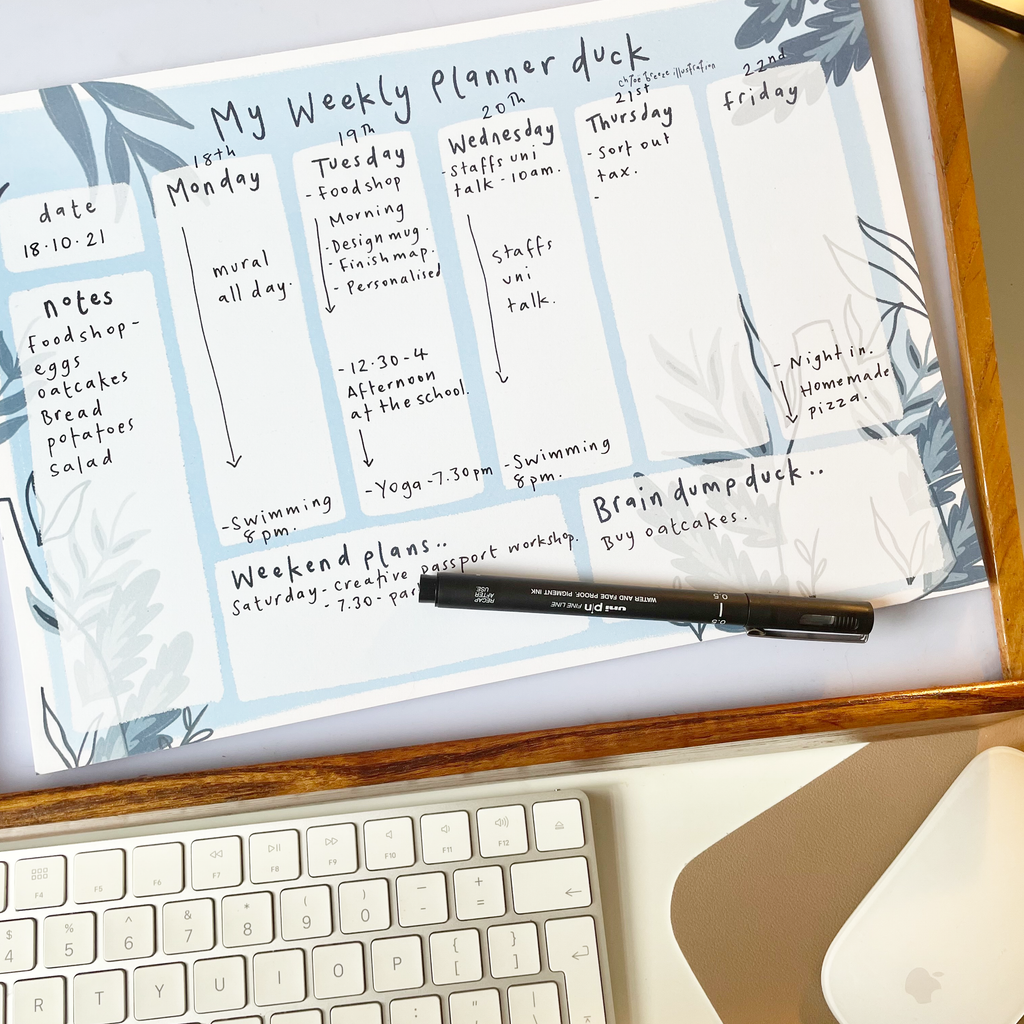 My Weekly Planner duck
chloe breeze illustration
date
18.10.21
notes
Foodshop-
eggs
oatcakes
Bread
potatoes
salad
18th
Monday
mural
all day.
-Swimming
8pm.
19th
Tuesday
-Foodshop
Morning
-Design mug.
-Finish map.
-Personalised
-12.30-4
Afternoon
at the school.
-Yoga-7.30pm
20th
Wednesday
-Staffs uni
talk-10am.
staffs
uni
talk.
-Swimming
8pm.
21st
Thursday
-Sort out
tax.
-
22nd
friday
-Night in.
Homemade
pizza.
Weekend plans..
Saturday-creative passport workshop.
-7.30-
Brain dump duck..
Buy oatcakes.
RECAP
AFTER
USE
uni pin FINE LINE
WATER AND FADE PROOF, PIGMENT INK
0.5
0.5
F4
F5
F6
F7
F8
F9
F10
F11
F12
$ % ^ & * ( ) — +
4 5 6 7 8 9 0 - =
R T Y U I O P { [ } ]
: " |